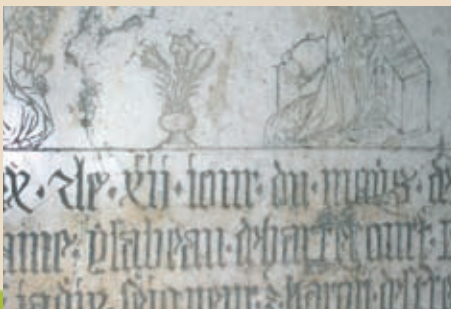 · ⁊ le · xij · iour · du · moys · de
ame · ysabeau · de harrecourt ·
iadis · seigneur · ⁊ baron · destre